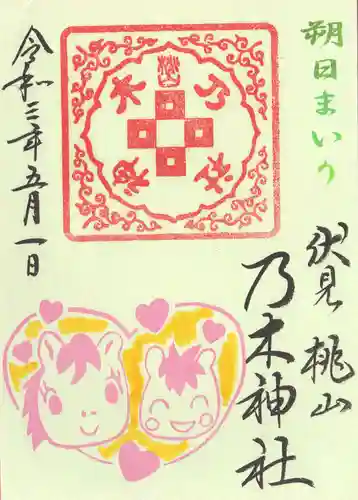 朔日まいり
伏見 桃山
乃木神社
令和三年五月一日
桃山
乃木神社